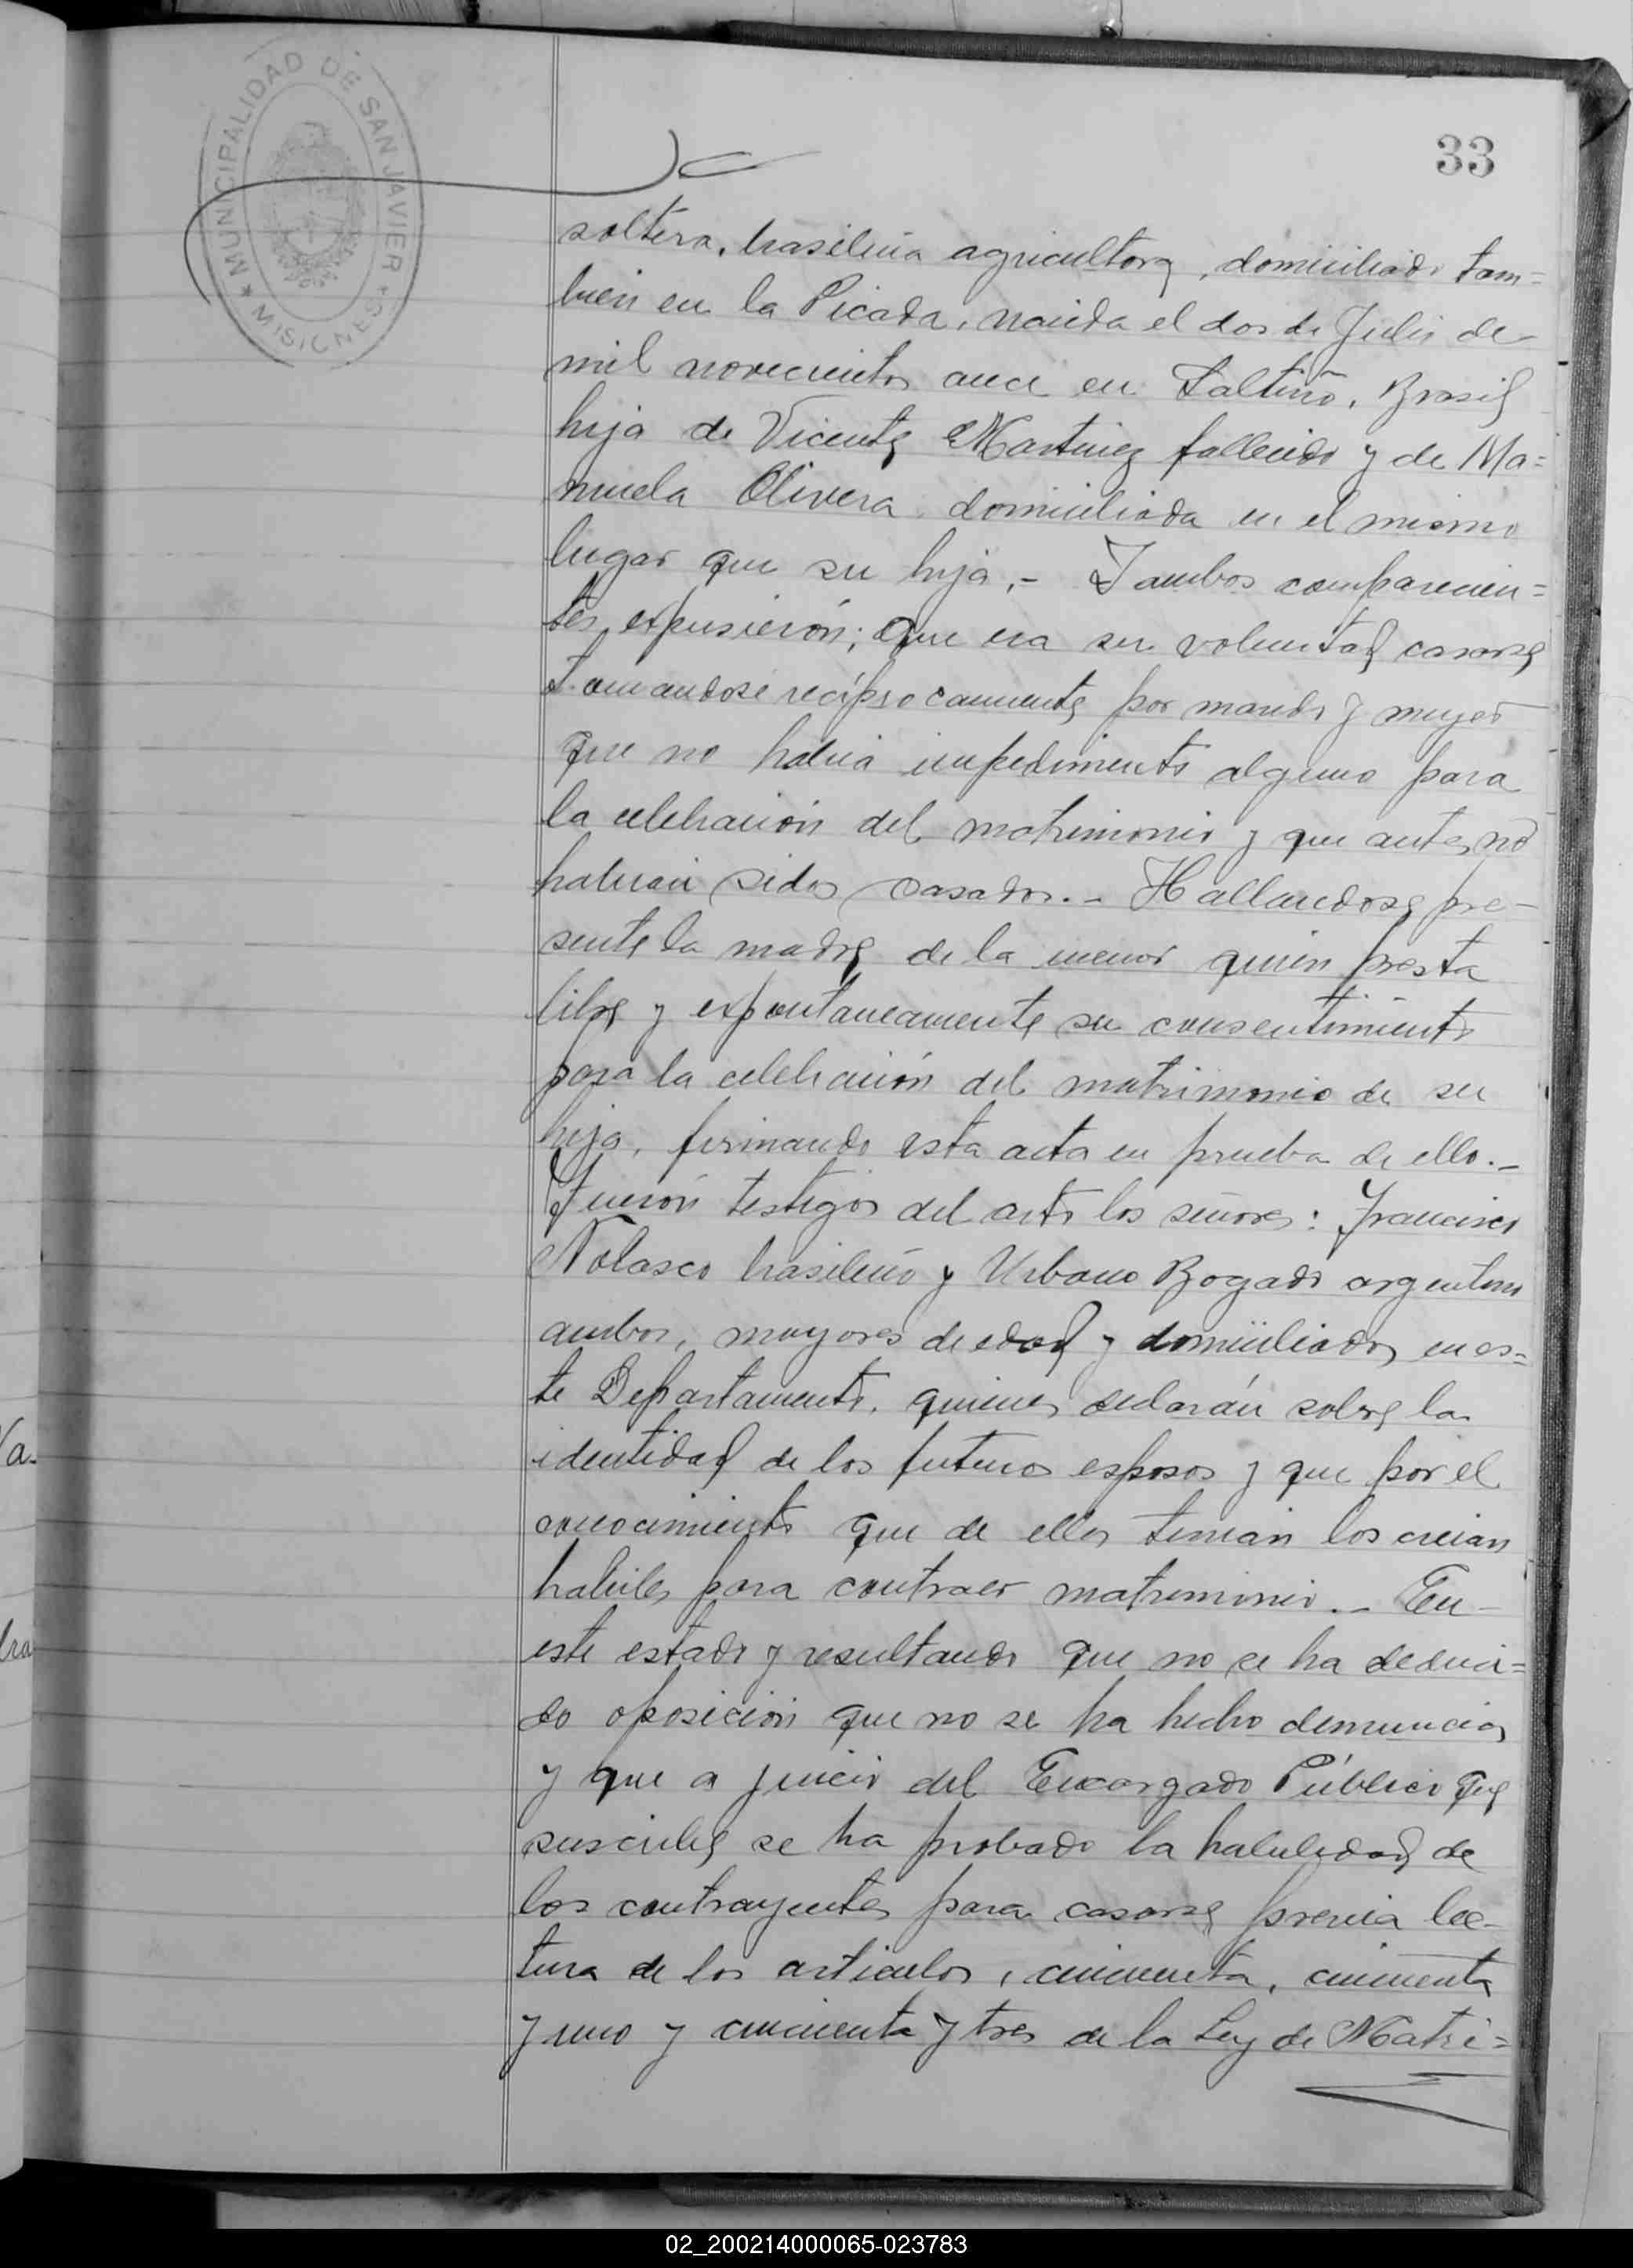 MUNICIPALIDAD DE SAN JAVIER
★ MISIONES ★
33
soltera, brasileña agricultora, domiciliado tam=
bien en la Picada, nacida el dos de Julio de
mil novecientos once en Saltiño, Brasil
hija de Vicente Martinez fallecido y de Ma=
nuela Olivera domiciliada en el mismo
lugar que su hija.- Y ambos comparecien=
tes expusierón; que era su voluntad casarse
tomandose recíprocamente por marido y mujer
que no habia impedimento alguno para
la celebración del matrimonio y que antes no
habian sidos casados.- Hallandose pre-
sente la madre de la menor quien presta
libre y expontaneamente su consentimiento
para la celebración del matrimonio de su
hija, firmando esta acta en prueba de ello.-
Fuerón testigos del acto los señores: Francisco
Nolasco brasileño y Urbano Bogado argentino
ambos, mayores de edad y domiciliados en es=
te Departamento, quienes declarán sobre la
identidad de los futuros esposos y que por el
conocimiento que de ellos tenian los creian
habiles para contraer matrimonio.- En-
este estado y resultando que no se ha deduci=
do oposición que no se ha hecho denuncia,
y que a juicio del Encargado Público que
suscribe se ha probado la habilidad de
los contrayentes para casarse previa lec-
tura de los articulos, cincuenta, cincuenta
y uno y cincuenta y tres de la Ley de Matri=
Va-
bra
02_200214000065-023783